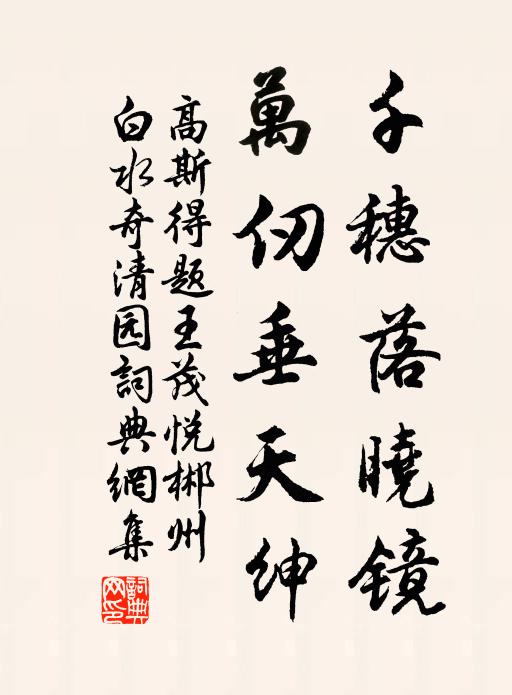 千穗落曉鏡
萬仞垂天紳
高斯得题王茂悦郴州
白水奇清园詞典網集
詞典網印